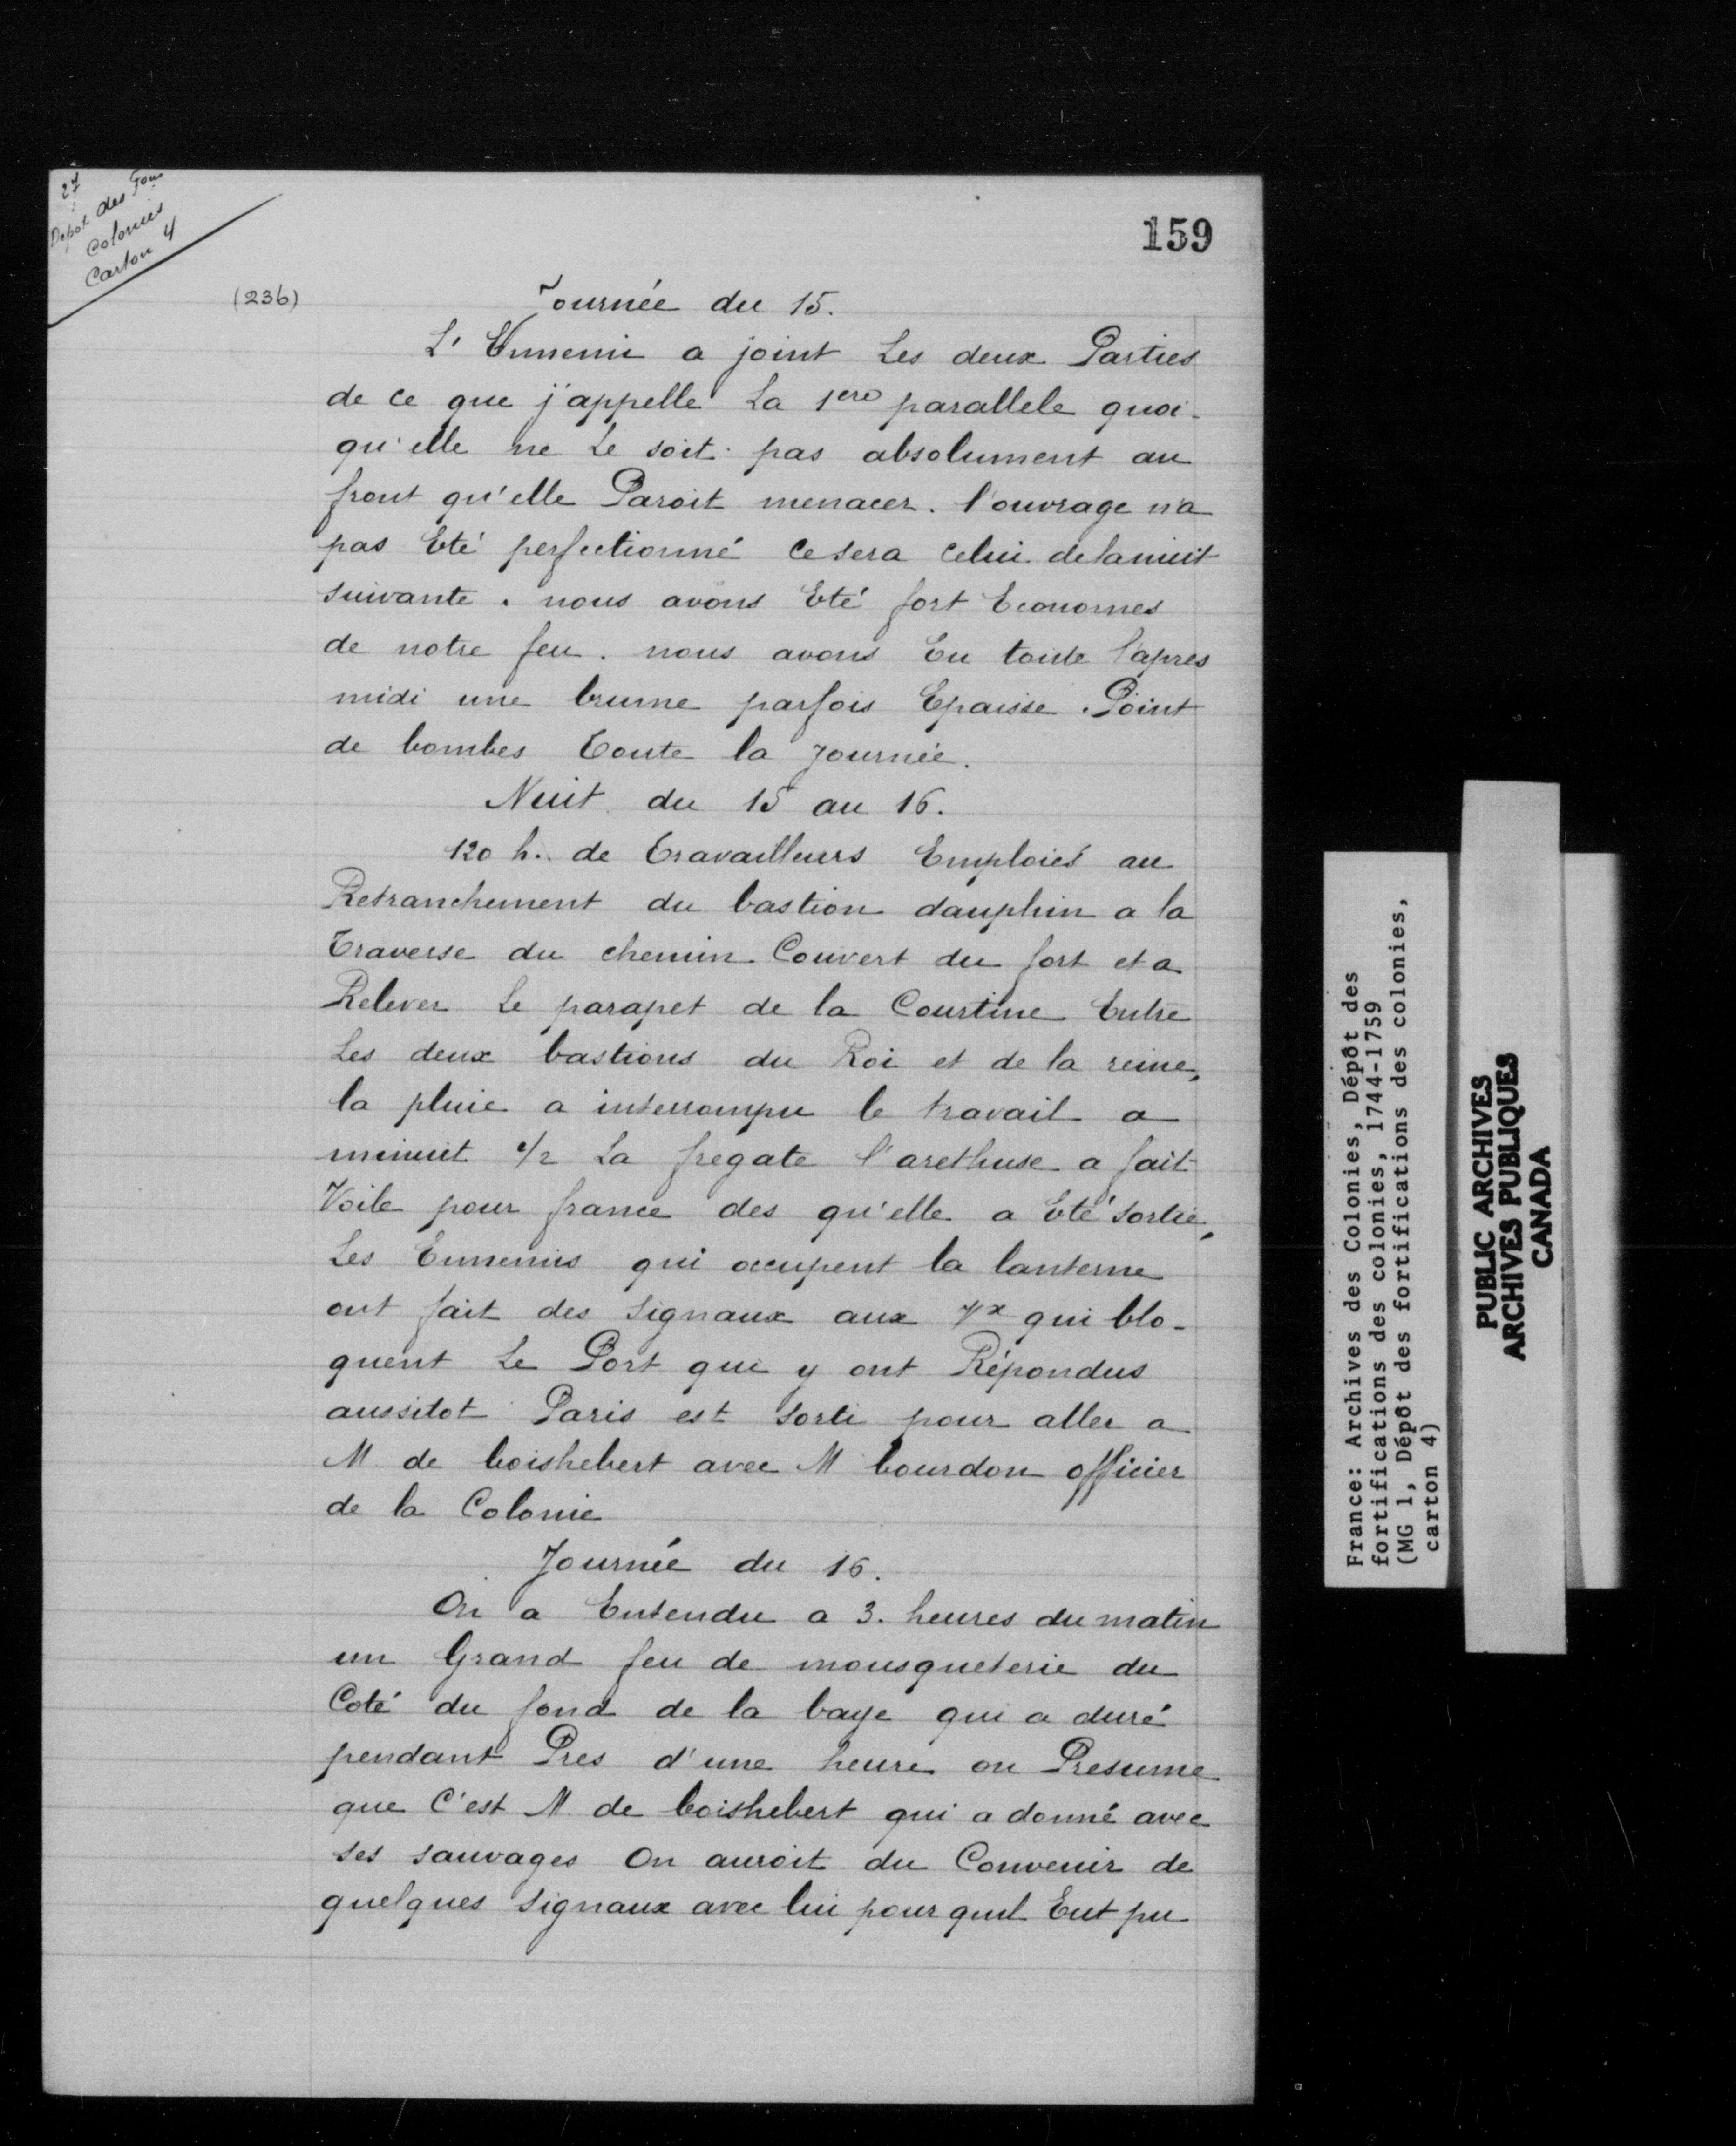 27
Depot des Fons
Colonies
Carton 4
159
(236)
Journée du 15.
L'Ennemi a joint Les deux Parties
de ce que j'appelle La 1ere parallele quoi-
qu'elle ne Le soit pas absolument au
front qu'elle Paroit menacer. l'ouvrage n'a
pas Eté perfectionné ce sera celui de la nuit
suivante. nous avons Eté fort Economes
de notre feu. nous avons Eu toute l'apres
midi une brume parfois Epaisse. Point
de bombes Toute la Journée.
Nuit du 15 au 16.
120 h. de Travailleurs Emploiés au
Retranchement du bastion dauphin a la
Traverse du chemin Couvert du fort et a
Relever Le parapet de la Courtine Entre
Les deux bastions du Roi et de la reine,
la pluie a interrompu le travail a
minuit 1/2 La fregate l'arethuse a fait
Voile pour france des qu'elle a Eté sortie,
Les Ennemis qui occupent la lanterne
ont fait des Signaux aux Vx qui blo-
quent Le Port qui y ont Répondus
aussitot Paris est sorti pour aller a
M de boishebert avec M bourdon officier
de la Colonie
Journée du 16.
On a Entendu a 3. heures du matin
un Grand feu de mousqueterie du
Coté du fond de la baye qui a duré
pendant Pres d'une heure on Presume
que C'est M de boishebert qui a donné avec
ses sauvages On auroit du Convenir de
quelques Signaux avec lui pour quil Eut pu
France: Archives des Colonies, Dépôt des
fortifications des colonies, 1744-1759
(MG 1, Dépôt des fortifications des colonies,
carton 4)
PUBLIC ARCHIVES
ARCHIVES PUBLIQUES
CANADA